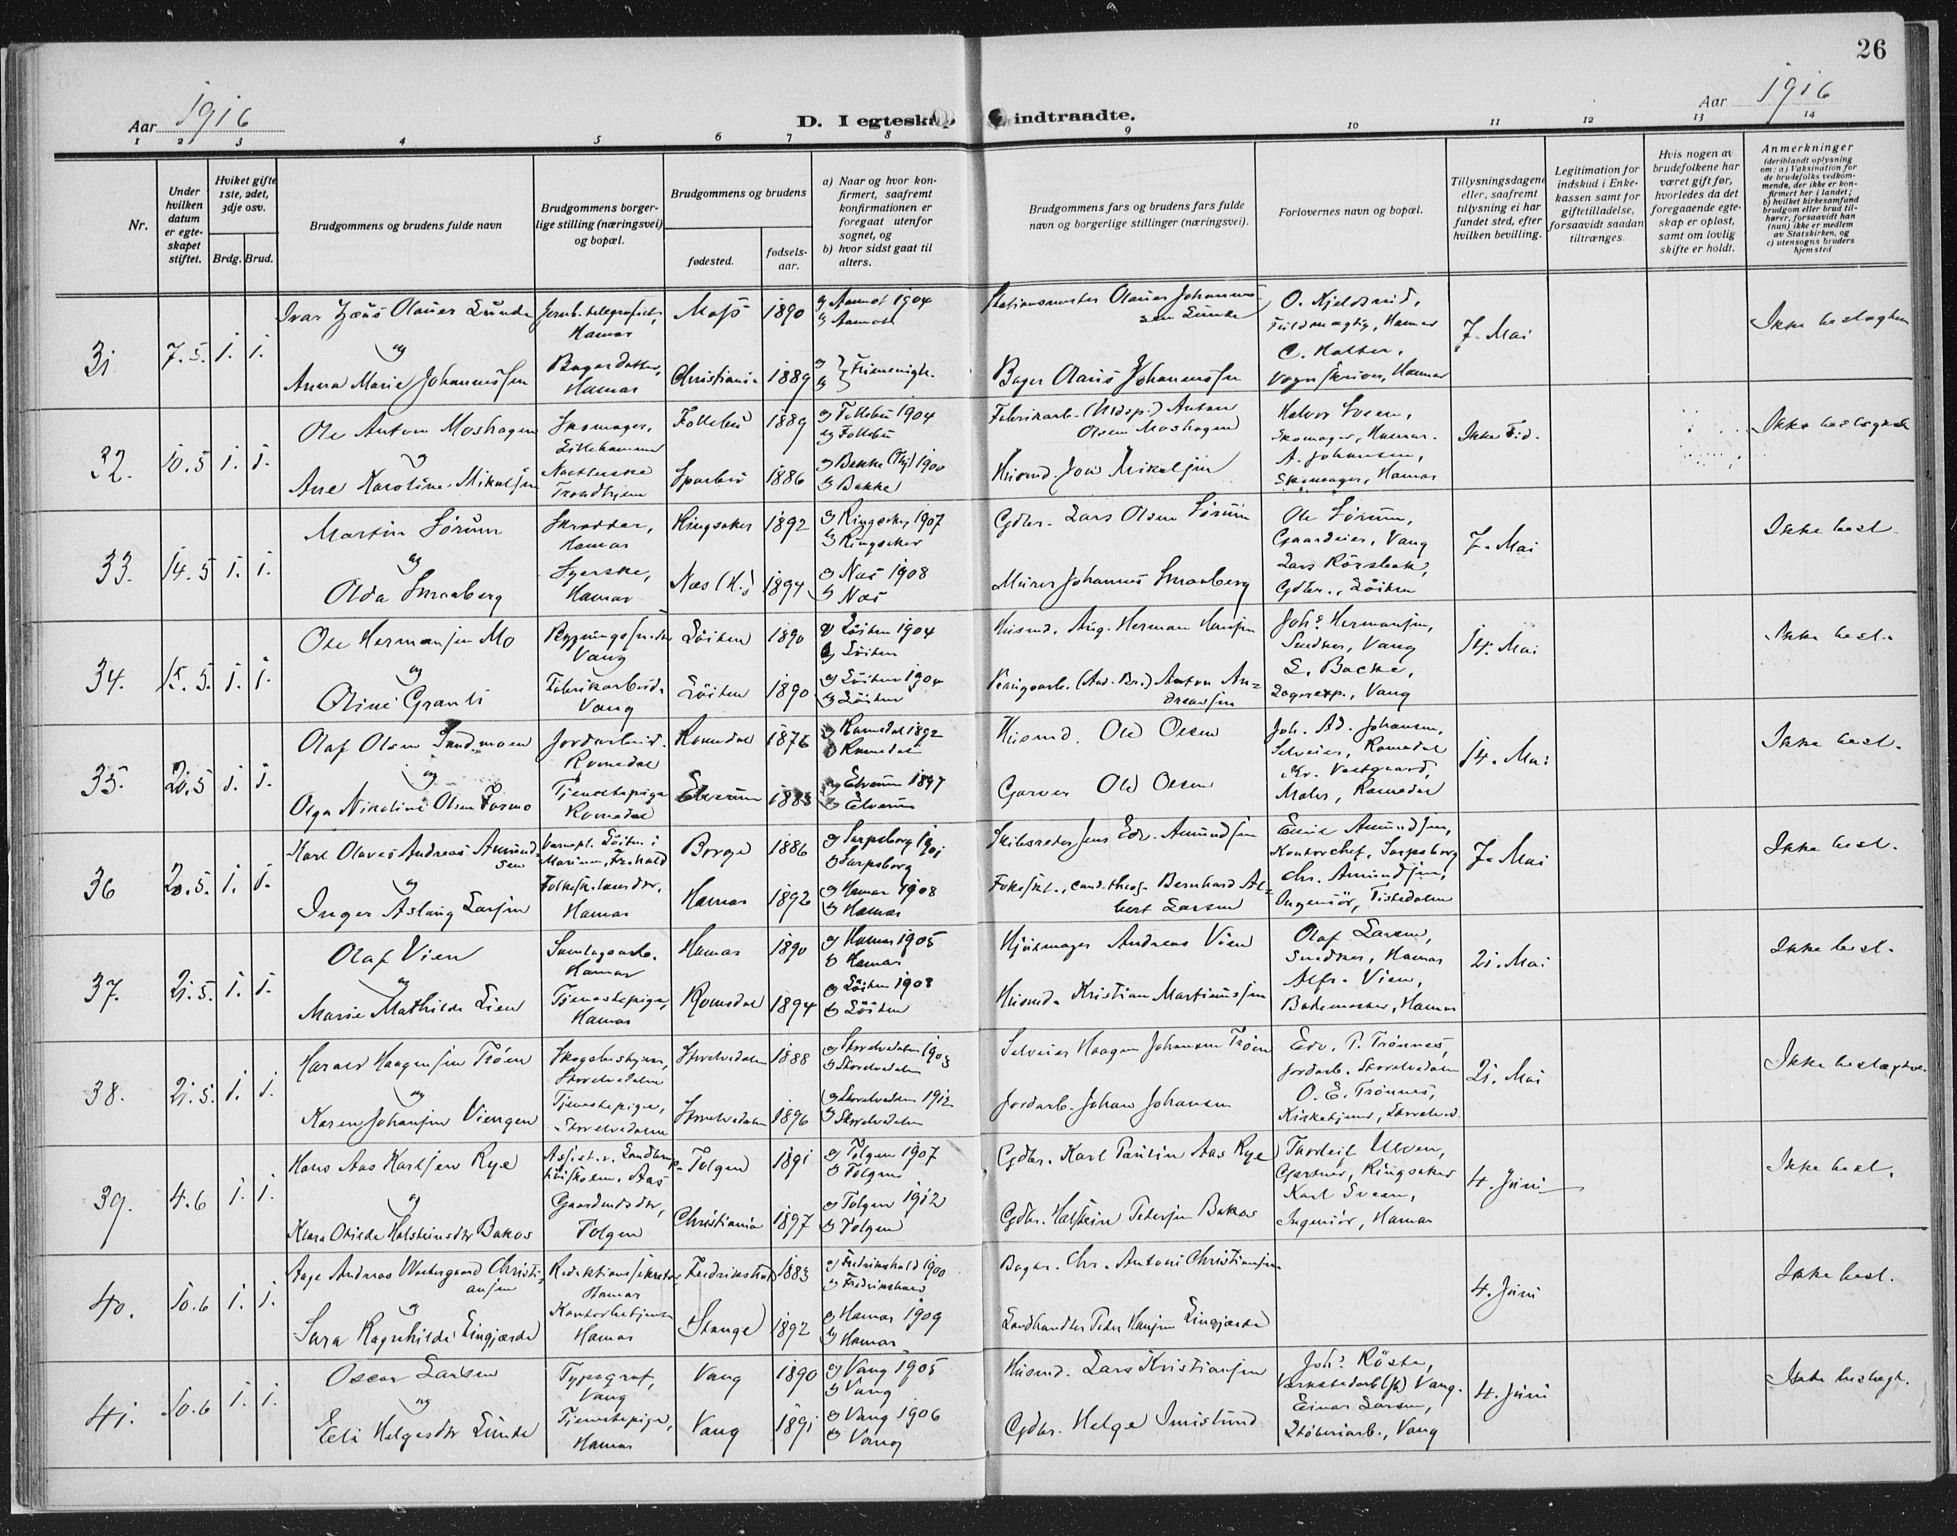 26
Aar 1916
D. I egteskap indtraadte.
Aar 1916
1 2 3 4 5 6 7 8 9 10 11 12 13 14
Nr.
Under hvilken datum er egteskapet stiftet.
Hviket gifte 1ste, 2det, 3dje osv.
Brdg. Brud.
Brudgommens og brudens fulde navn
Brudgommens borgerlige stilling (næringsvei) og bopæl.
Brudgommens og brudens
fødested.
fødselsaar.
a) Naar og hvor konfirmert, saafremt konfirmationen er foregaat utenfor sognet, og
b) hvor sidst gaat til alters.
Brudgommens fars og brudens fars fulde navn og borgerlige stillinger (næringsvei).
Forlovernes navn og bopæl.
Tillysningsdagene eller, saafremt tillysning ei har fundet sted, efter hvilken bevilling.
Legitimation for indskud i Enkekassen samt for giftetilladelse, forsaavidt saadan tiltrænges.
Hvis nogen av brudefolkene har været gift før, hvorledes da det foregaaende egteskap er opløst, samt om lovlig skifte er holdt.
Anmerkninger
(deriblandt oplysning om: a) Vaksination for de brudefolks vedkommende, der ikke er konfirmert her i landet; b) hvilket kirkesamfund brudgom eller brud tilhører, forsaavidt han (hun) ikke er medlem av Statskirken, og c) utensogns bruders hjemsted
31 7.5. 1. 1.
Ivar Olaus Lunde
Hamar
Moss 1890
a) Aamot 1904
b) Aamot
Stationsmester Olaus Johannessen Lunde
O. Kjeldsrud,
Fuldmægtig, Hamar
7. Mai
Ikke beslægtet
og
Anna Marie Johannessen
Bagerdatter,
Hamar
Christiania 1889
a) b) } Frimenigh.
Bager Olaus Johannessen
C. Holter,
Vognskriver, Hamar
32. 10.5 1. 1.
Ole Anton Moshagen
Skomager,
Lillehammer
Follebu 1889
a) Follebu 1904
b) Follebu
Fabrikarb. Anton
Olsen Moshagen
Halvor Sveen,
Skomager, Hamar.
Ikke beslægtede
og
Ane Karoline Mikalsen
Trondhjem
Sparbu 1886
a) Bakke 1900
b) Bakke
Husmd. Mikalsen
A. Johansen,
Skomager, Hamar
33. 14.5 1. 1.
Martin Sörum
Skrædder,
Hamar
Ringsaker 1892
a) Ringsaker 1907
b) Ringsaker
Gdbr. Lars Olsen Sörum
Ole Sörum,
Gaardeier, Vang
7. Mai
Ikke besl.
og
Olda Smaaberg
Syerske,
Hamar
Næs (H.) 1894
a) Næs 1908
b) Næs
Murer Johannes Smaaberg
Lars Rörsbak,
Gdbr., Löiten
34. 15.5. 1. 1.
Ole Hermansen Mo
Vang
Löiten 1890
a) Löiten 1904
b) Löiten
Husmd. Aug. Herman Hansen
Johs. Hermansen,
Snedker, Vang
14. Mai
Ikke besl.
og
Oline Granli
Fabrikarbeid.
Vang
Löiten 1890
a) Löiten 1904
b) Löiten
Anton Andreasen
S. Backe,
Lagerexp., Vang
35. 20.5 1. 1.
Olaf Olsen Sundmoen
Jordarbeid.
Romedal
Romedal 1876
a) Romedal 1892
b) Romedal
Husmd. Ole Olsen
Joh. Ad. Johansen,
Selveier, Romedal
14. Mai
Ikke besl.
og
Olga Nikoline Olsen Fosmo
Tjenestepige
Romedal
Elverum 1883
a) Elverum 1897
b) Elverum
Garver Ole Olsen
Kr. Vestgaard,
Maler, Romedal
36 20.5. 1. 1.
Karl Olaves Andreas Amundsen
Borge 1886
a) Sarpsborg 1901
b) Sarpsborg
Skibsreder Jens Edv. Amundsen
Emil Amundsen,
Kontorchef, Sarpsborg
7. Mai
Ikke besl.
og
Inger Aslaug Larsen
Hamar
Hamar 1892
a) Hamar 1908
b) Hamar
cand. theol. Bernhard Albert Larsen
Chr. Amundsen,
Ingeniör, Tistedalen
37. 21.5. 1. 1.
Olaf Vien
Hamar
Hamar 1890
a) Hamar 1905
b) Hamar
Hjulmager Andreas Vien
Olaf Larsen,
Snedker, Hamar
21. Mai
Ikke besl.
og
Marie Mathilde Lien
Tjenestepige,
Hamar
Romedal 1894
a) Löiten 1908
b) Löiten
Husmd. Kristian Martinussen
Alfr. Vien,
Bademester, Hamar
38. 21.5. 1. 1.
Harald Haagensen Tröen
Storelvedalen
Storelvedalen 1888
a) Storelvedalen 1903
b) Storelvedalen
Selveier Haagen Johansen Tröen
Edv. P. Trönnes,
Jordarb. Storelvedalen
21. Mai
Ikke beslægtede.
og
Karen Johansen Viengen
Tjenestepige,
Storelvedalen
Storelvedalen 1896
a) Storelvedalen 1912
b) Storelvedalen
Jordarb. Johan Johansen
O. E. Trönnes,
Kirketjener, Storelved.
39. 4.6 1. 1.
Hans Aas Karlsen Rye
Tolgen 1891
a) Tolgen 1907
b) Tolgen
Gdbr. Karl Paulin Aas Rye
Thorleif Ulven,
Gartner, Ringsaker
4. Juni
Ikke besl.
og
Klara Otilde Halsteinsdtr Bakos
Gaardmdsdtr,
Tolgen
Christiania 1897
a) Tolgen 1912
b) Tolgen
Gdbr. Halstein Pedersen Bakos
Karl Sveen,
Ingeniör, Hamar
40. 10.6 1. 1.
Aage Andreas Westergaard Christiansen
Redaktionssekretær
Hamar
Fredrikshald 1883
a) Fredrikshald 1900
b) Fredrikshald
Bager. Chr. Antoni Christiansen
4. Juni
Ikke besl.
og
Sara Ragnhilde Lingjærde
Kontorbetjent
Hamar
Stange 1892
a) Hamar 1909
b) Hamar
Landhandler Peder Hansen Lingjærde
41. 10.6 1. 1.
Oscar Larsen
Typograf,
Vang
Vang 1890
a) Vang 1905
b) Vang
Husmd. Lars Kristiansen
Johs. Röste,
Vang.
4. Juni
Ikke beslægt.
og
Eli Helgesdtr Lunde
Tjenestepige,
Hamar
Vang 1891
a) Vang 1906
b) Vang
Gdbr. Helge Imislund
Einar Larsen,
Stöberiarb., Vang